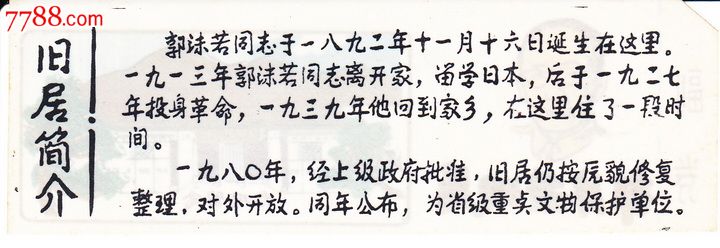 7788.com
旧居简介
郭沫若同志于一八九二年十一月十六日诞生在这里。
一九一三年郭沫若同志离开家,留学日本,后于一九二七
年投身革命,一九三九年他回到家乡,在这里住了一段时
间。
一九八〇年,经上级政府批准,旧居仍按原貌修复
整理,对外开放。同年公布,为省级重点文物保护单位。